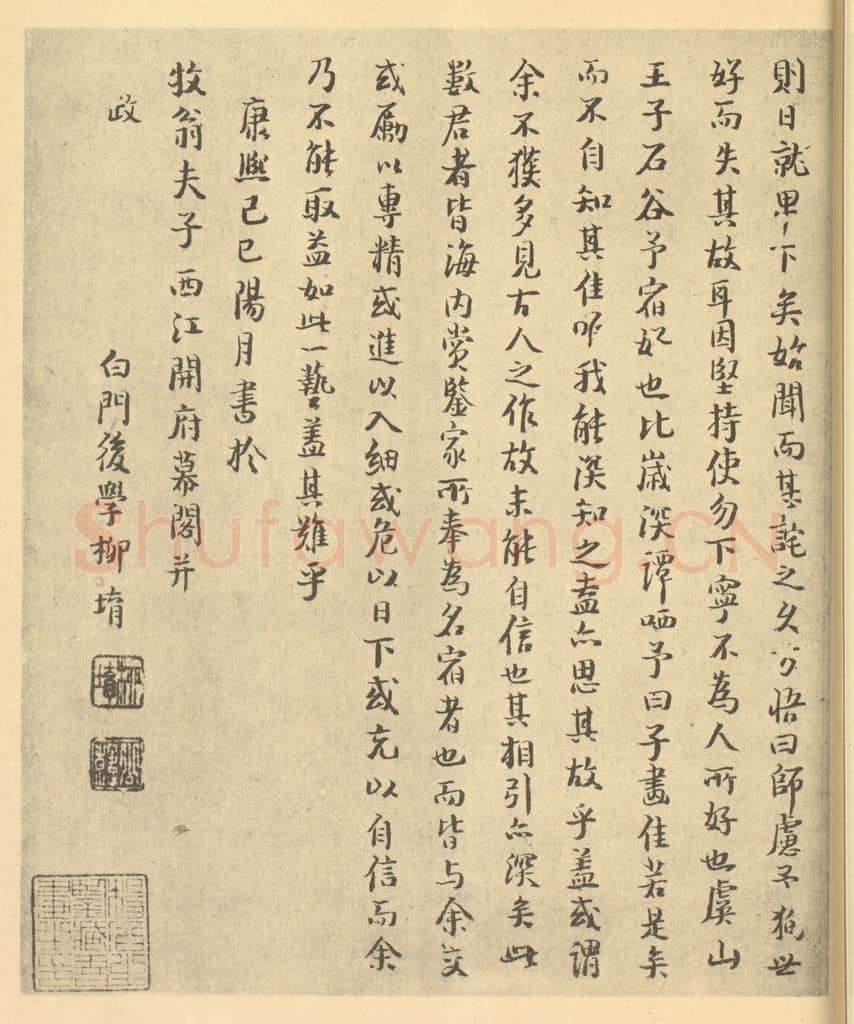 則日就畀下矣始聞而甚詫之久乃悟曰師慮予狥世
好而失其故耳因堅持使勿下寧不為人所好也虞山
王子石谷予宿好也比歲深譚哂予曰子畫佳若是矣
而不自知其佳唯我能深知之盍亦思其故乎蓋或謂
余不獲多見古人之作故未能自信也其相引亦深矣此
數君者皆海内賞鑒家所奉為名宿者也而皆与余交
或勵以專精或進以入細或危以日下或充以自信而余
乃不能取益如此一藝蓋其難乎
康熙己巳陽月書於
牧翁夫子西江開府幕閣并
政
白門後學柳堉
Shufawang.CN